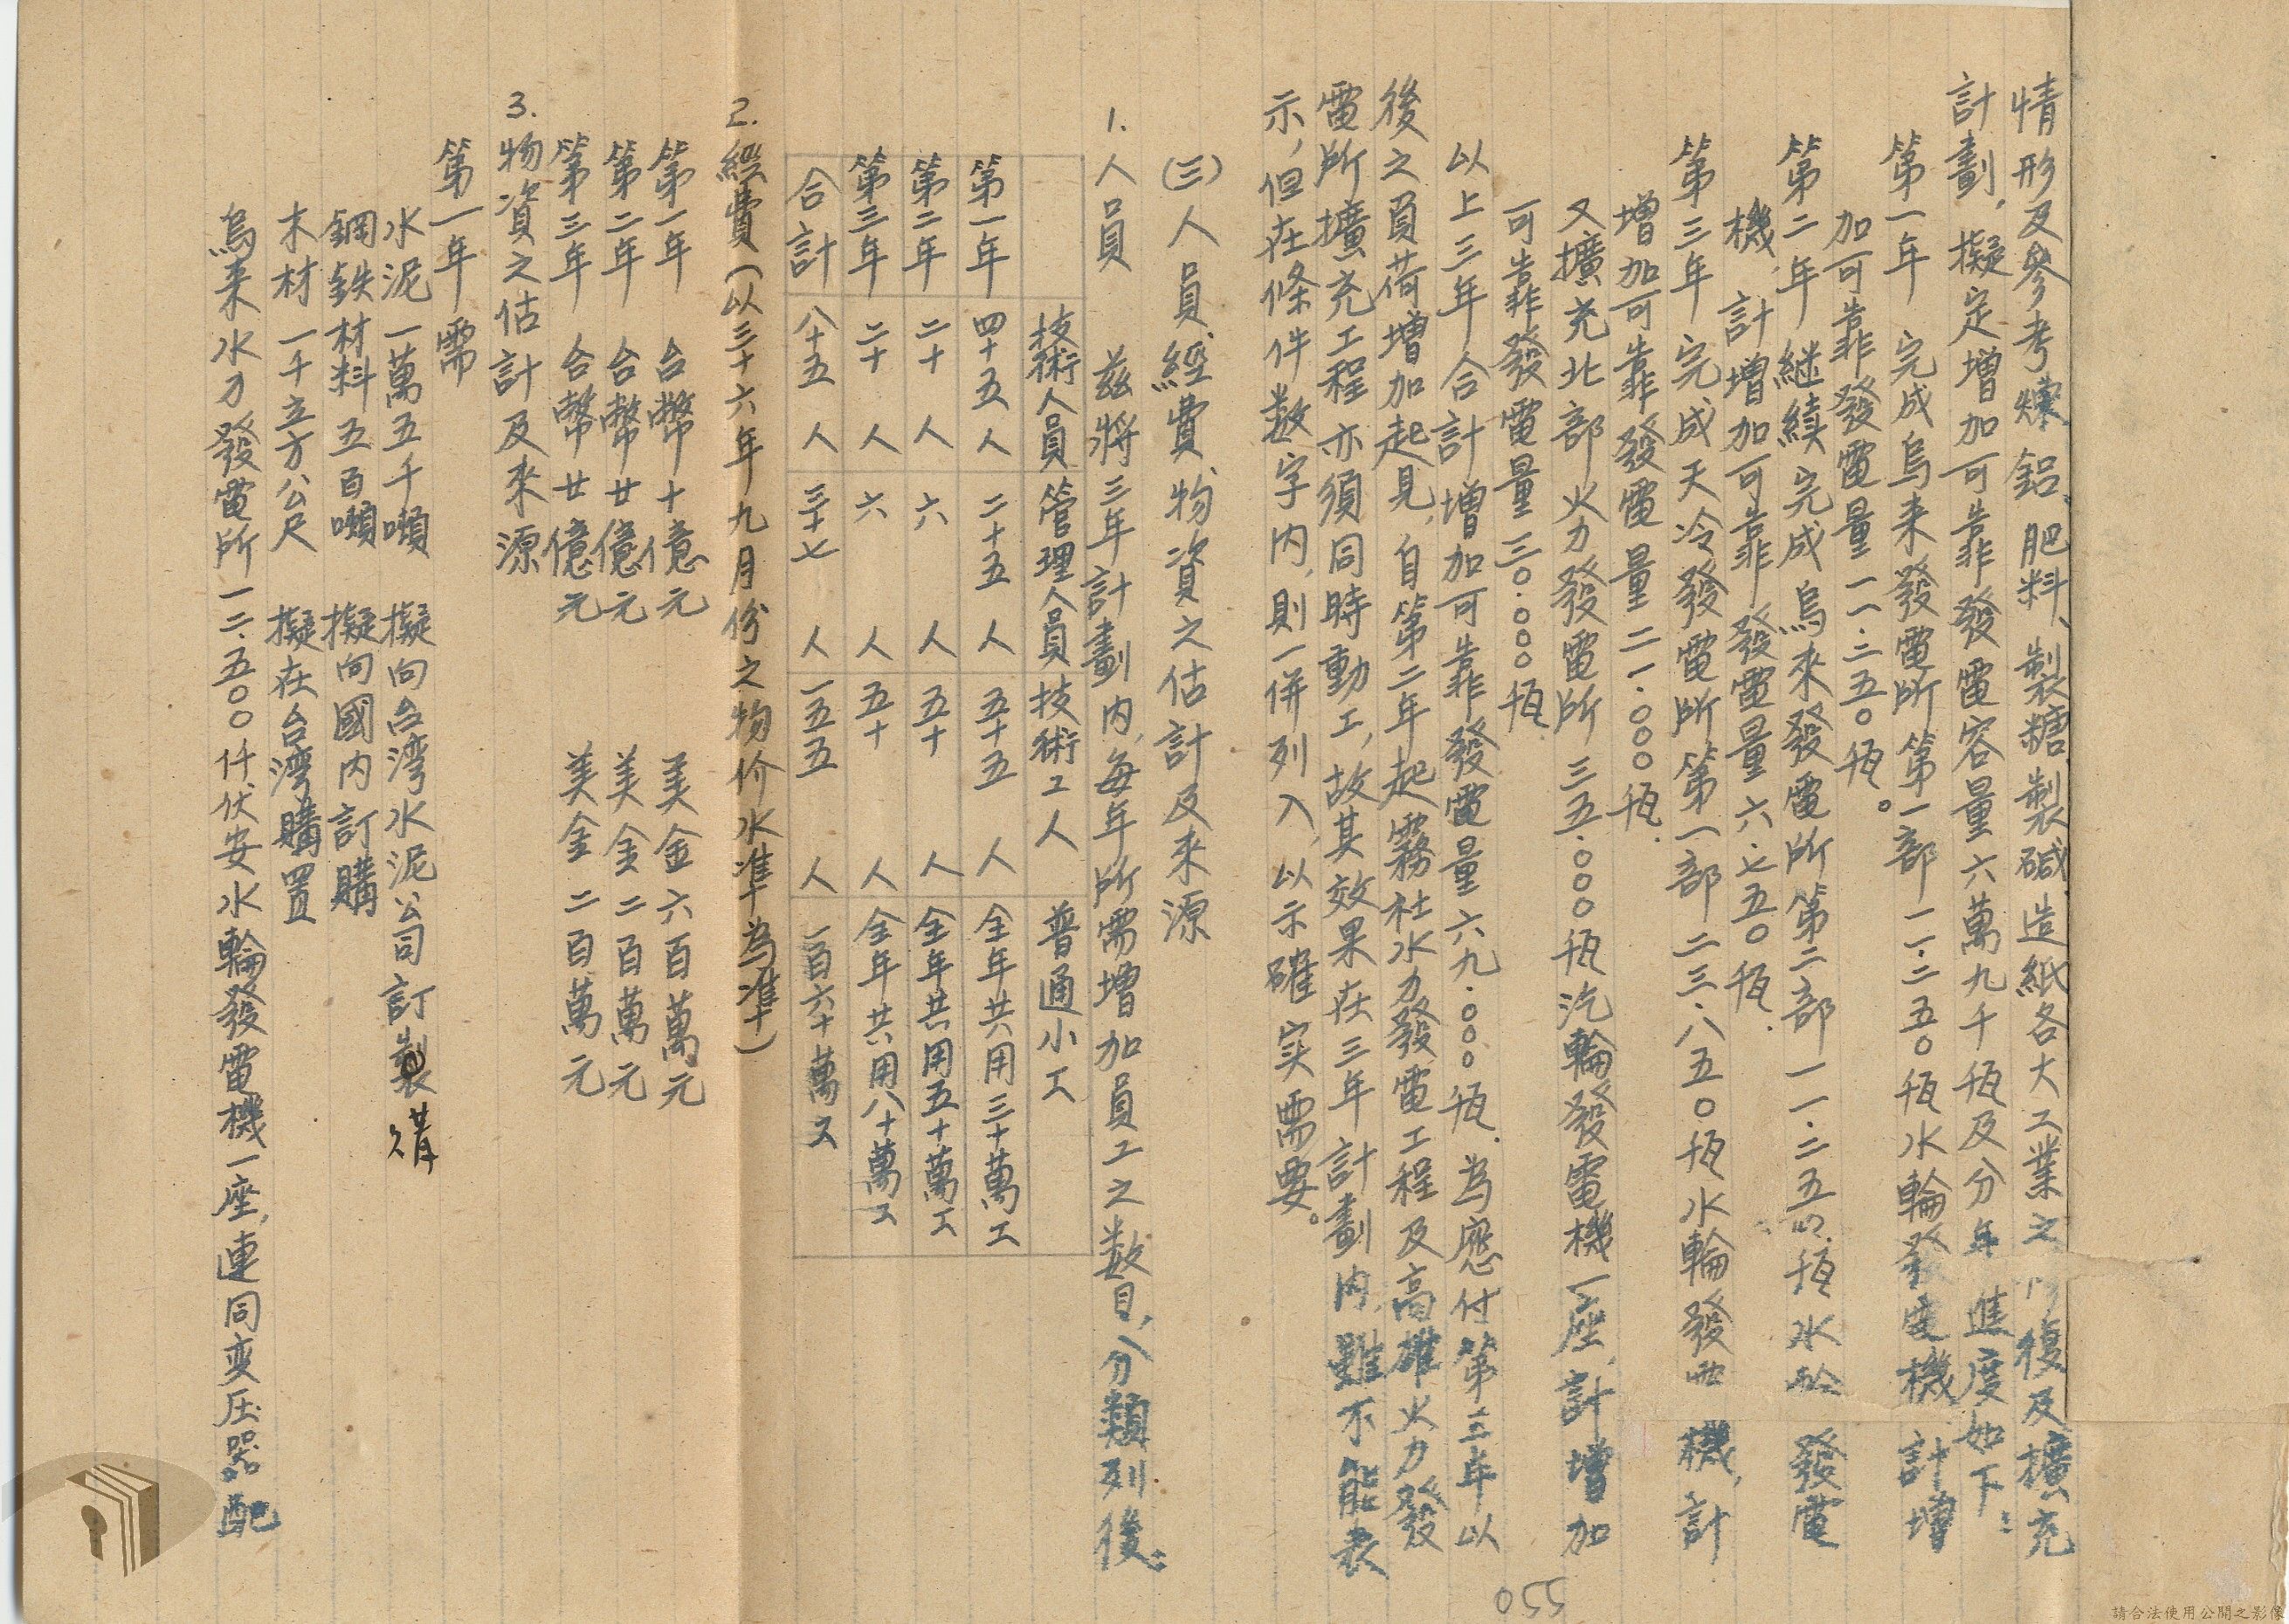 情形及參考煉鋁、肥料、製糖、製碱、造紙各大工業之修復及擴充
計劃，擬定增加可靠發電容量六萬九千瓩及分年進度如下：
第一年　完成烏来發電所第一部一一.二五〇瓩水輪發電機計增
加可靠發電量一一.二五〇瓩。
第二年　継續完成烏來發電所第二部一一.二五〇瓩水輪發電
機，計增加可靠發電量六.七五〇瓩.
第三年　完成天冷發電所第一部二三.八五〇瓩水輪發電機，計
增加可靠發電量二一.〇〇〇瓩.
又擴充北部火力發電所三五.〇〇〇瓩汽輪發電機一座，計增加
可靠發電量三〇.〇〇〇瓩
以上三年合計增加可靠發電量六九.〇〇〇瓩.為應付第三年以
後之負荷增加起見，自第二年起霧社水力發電工程及高雄火力發
電所擴充工程亦須同時動工，故其效果在三年計劃內，雖不能表
示，但在條件数字內，則一併列入，以示確实需要。
(三)人員、經費、物資之估計及來源
1.人員　茲將三年計劃內，每年所需增加員工之数目，分類列後：
技術人員　管理人員　技術工人　普通小工
第一年　四十五人　二十五人　五十五人　全年共用三十萬工
第二年　二十人　六人　五十人　全年共用五十萬工
第三年　二十人　六人　五十人　全年共用八十萬工
合計　八十五人　三十七人　一五五人　一百六十萬工
2.經費(以三十六年九月份之物价水準為準)
第一年　台幣十億元　美金六百萬元
第二年　台幣廿億元　美金二百萬元
第三年　台幣廿億元　美金二百萬元
3.物資之估計及來源
第一年需
水泥一萬五千噸　擬向台湾水泥公司訂購
鋼鉄材料五百噸　擬向國內訂購
木材一千立方公尺　擬在台湾購置
烏来水力發電所一二.五〇〇仟伏安水輪發電機一座，連同变压器配
055
請合法使用公開之影像